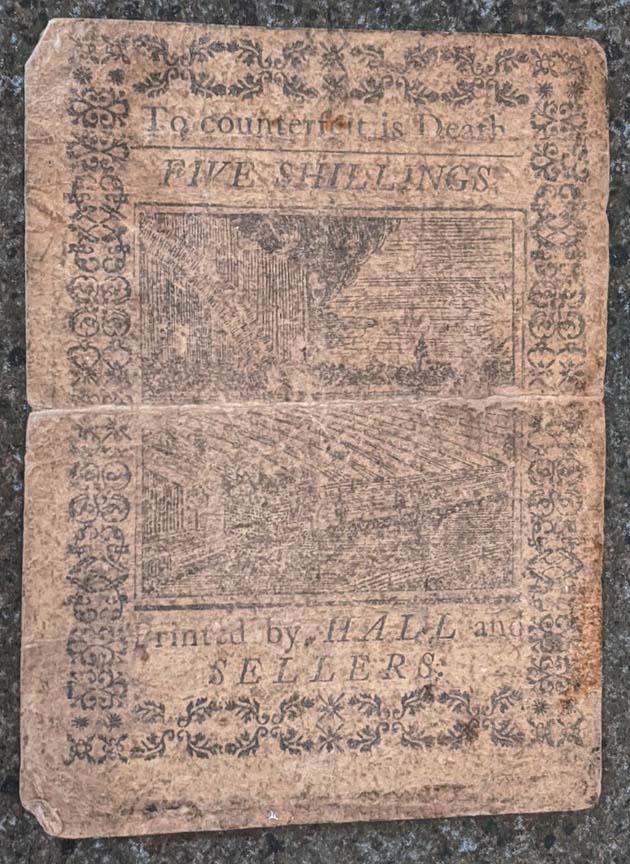 To counterfeit is Death
FIVE SHILLINGS.
Printed by HALL and
SELLERS.